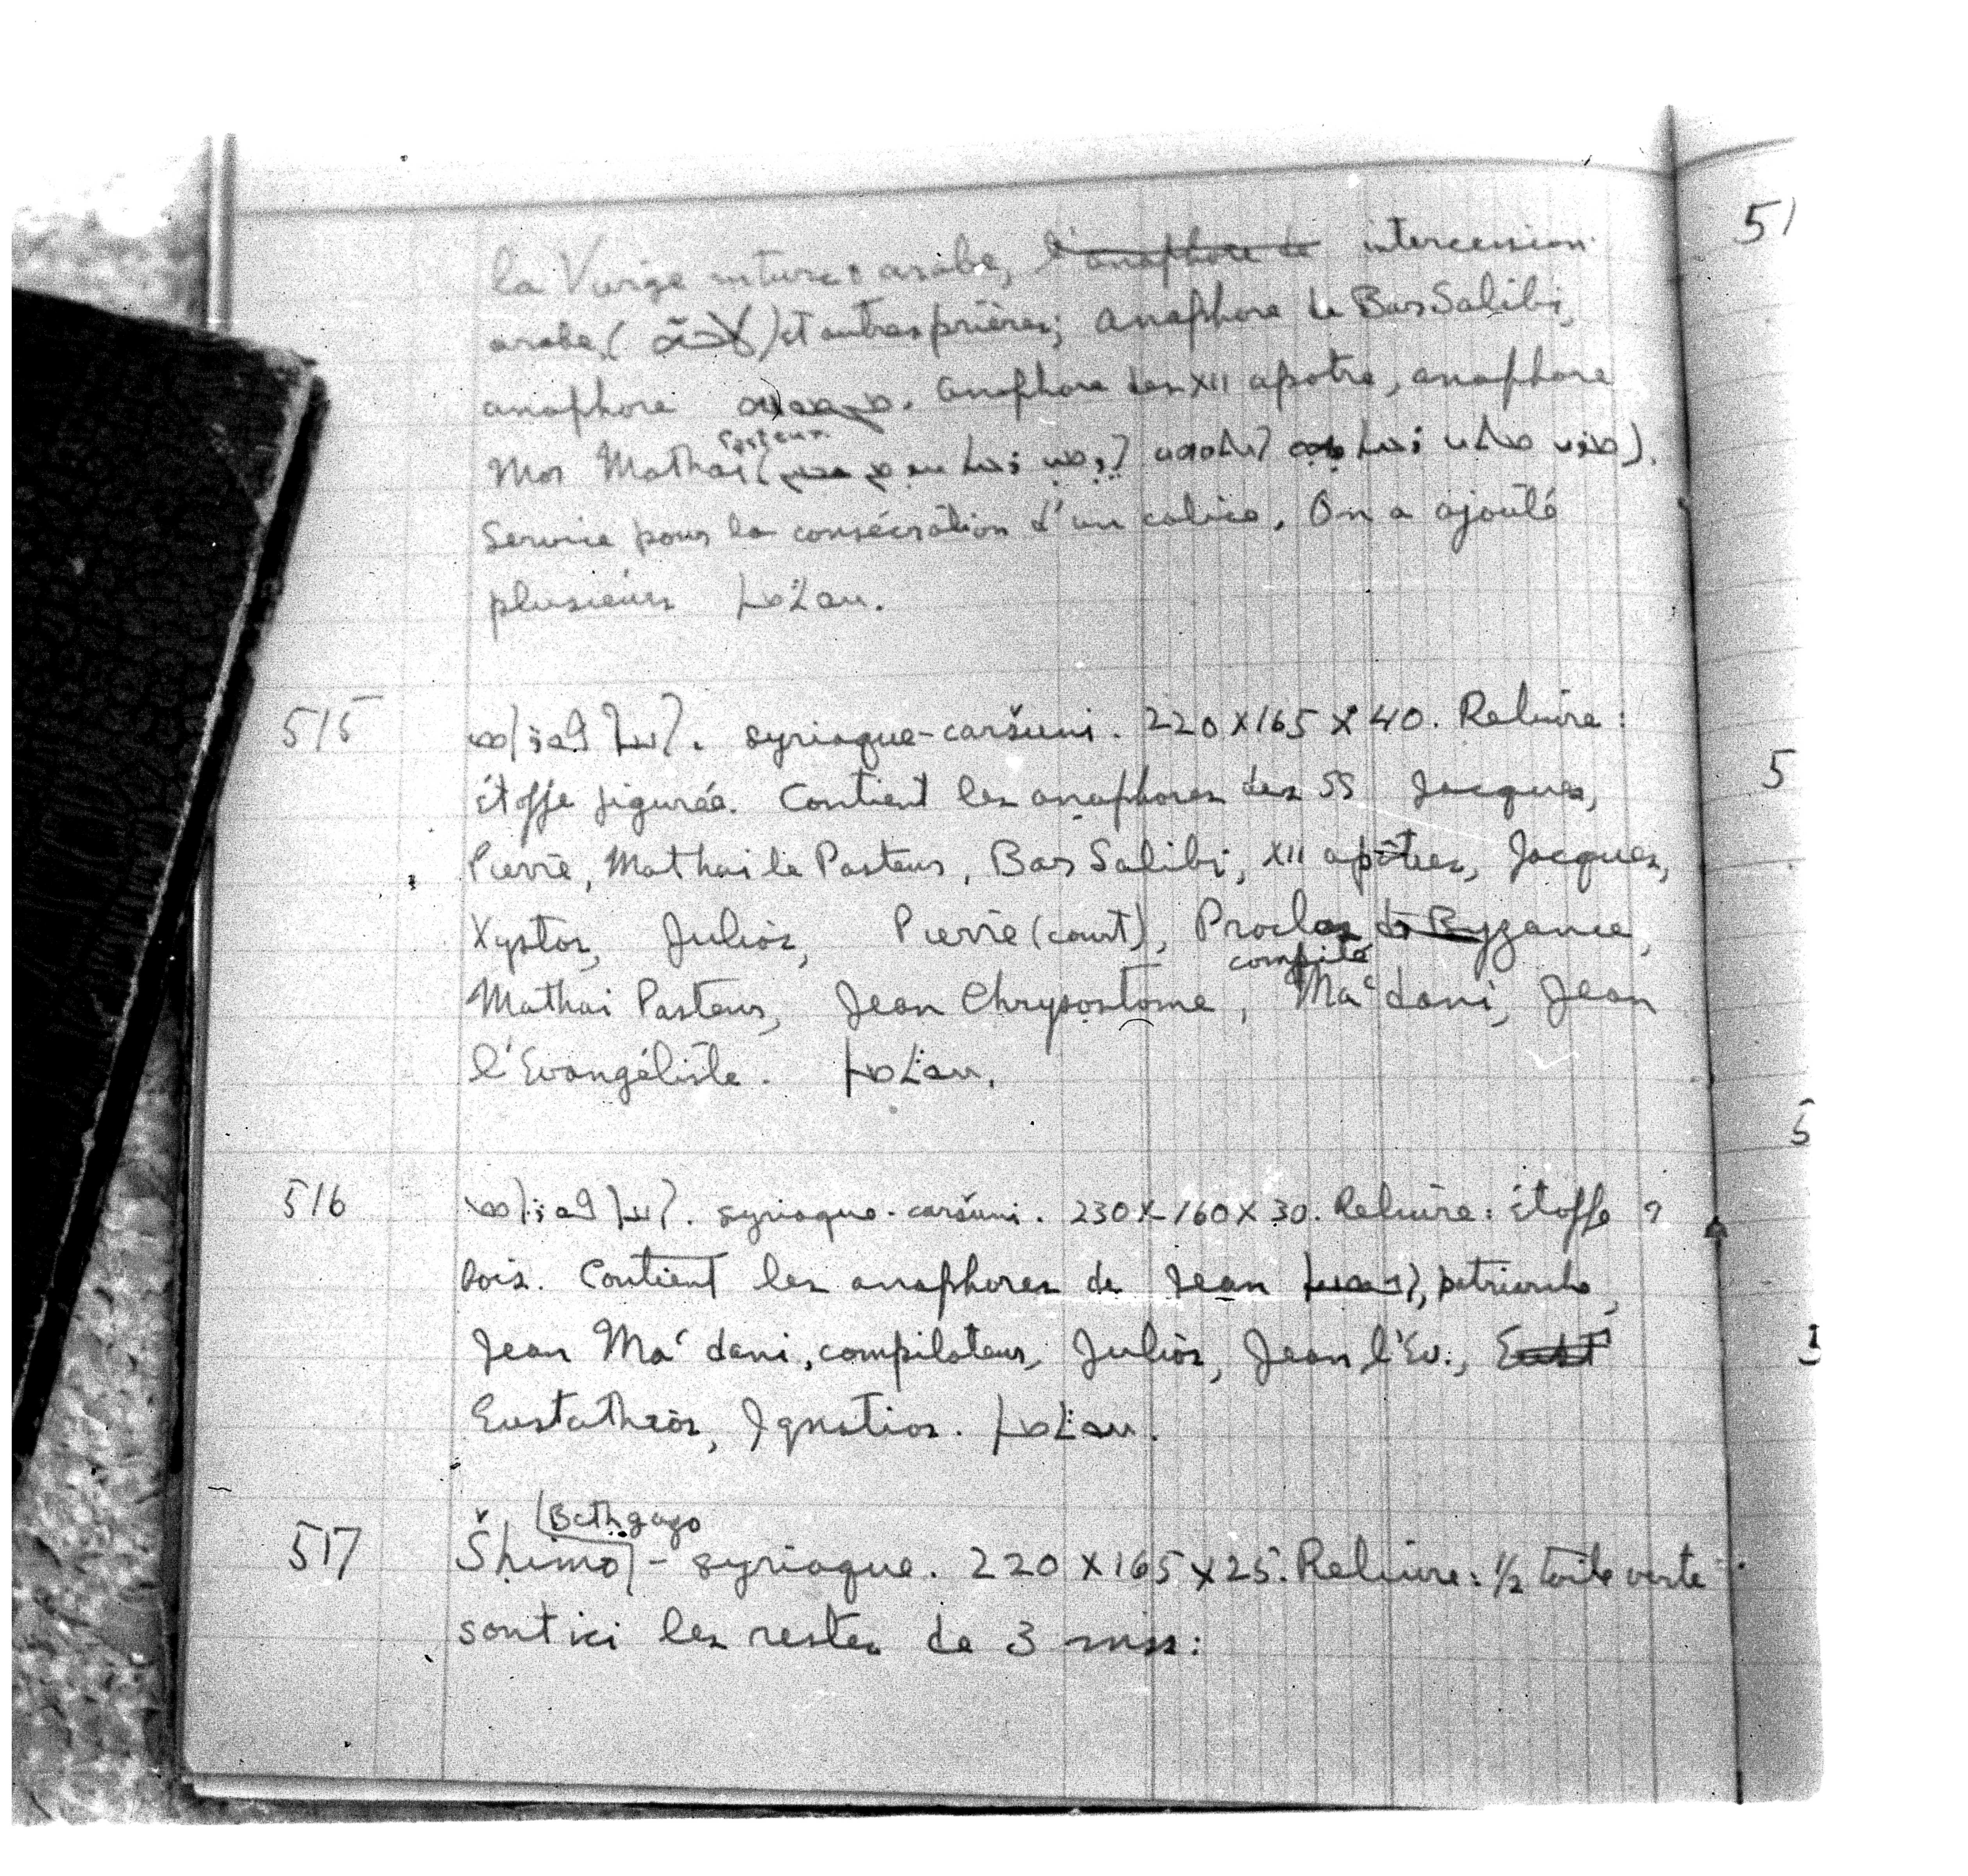 la Vierge arabe, l'anaphore de intercession
arabe ( ) et autres prières; Anaphore de Bar Salibi,
anaphore . Anaphore des XII apotre, anaphore
Pasteur
Mor Mathai ( ).
Service pour la consécration d'un calice. On a ajouté
plusieurs ܚܘܬܡܐ.
515
. syriaque-caršuni. 220 X 165 X 40. Reliure:
étoffe figurée. Contient les anaphores des SS Jacques,
Pierre, Mathai le Pasteur, Bar Salibi, XII apôtres, Jacques,
Xystos, Juliòs, Pierre (court), Proclos de Byzance,
compilé
Mathai Pasteur, Jean Chrysostome, Ma'dani, Jean
l'Evangéliste. ܚܘܬܡܐ.
516
. syriaque-caršuni. 230 X 160 X 30. Reliure: étoffe
bois. Contient les anaphores de Jean , patriarche,
Jean Ma'dani, compilateur, Juliòs, Jean l'Ev., Eust
Eustatheòs, Ignatios. ܚܘܬܡܐ.
(Bethgazo
517
Šhimo) - syriaque. 220 X 165 X 25. Reliure: 1/2 toile verte
sont ici les restes de 3 mss:
51
5
5